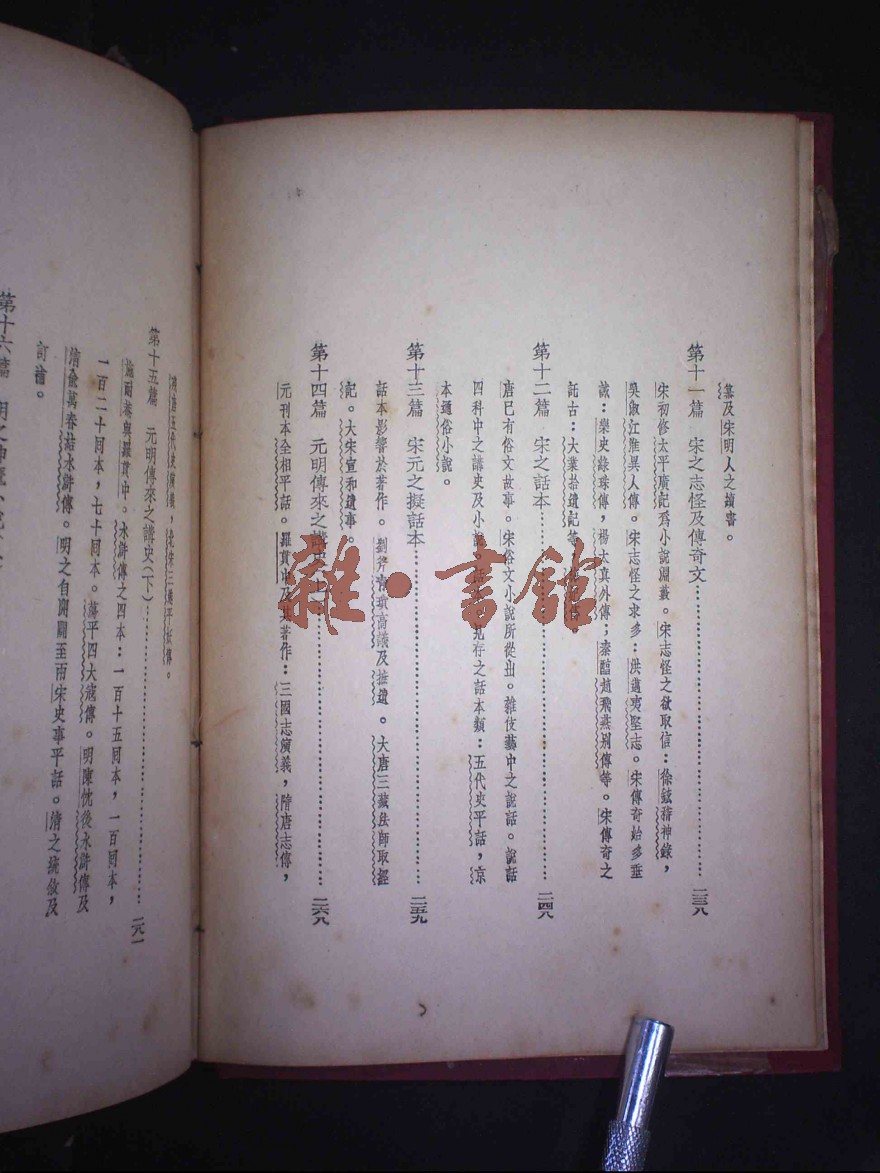 纂及宋明人之續書。
第十一篇　宋之志怪及傳奇文……二三八
宋初修太平廣記爲小說淵藪。宋志怪之欲取信：徐鉉稽神錄，
吳淑江淮異人傳。宋志怪之求多：洪邁夷堅志。宋傳奇始多垂
誡：樂史綠珠傳，楊太眞外傳；秦醇趙飛燕別傳等。宋傳奇之
託古：大業拾遺記等
第十二篇　宋之話本……二四八
唐已有俗文故事。宋俗文小說所從出。雜伎藝中之說話。說話
四科中之講史及小說。見存之話本類：五代史平話，京
本通俗小說。
第十三篇　宋元之擬話本……二五九
話本影響於著作。劉斧青瑣高議及摭遺。大唐三藏法師取經
記。大宋宣和遺事。
第十四篇　元明傳來之講史……二六八
元刊本全相平話。羅貫中及其著作：三國志演義，隋唐志傳，
殘唐五代史演義，北宋三遂平妖傳。
第十五篇　元明傳來之講史（下）……二八一
施耐菴與羅貫中。水滸傳之四本：一百十五回本，一百回本，
一百二十回本，七十回本。蕩平四大寇傳。明陳忱後水滸傳及
清俞萬春結水滸傳。明之自開闢至兩宋史事平話。清之統敘及
訂補。
第十六篇　明之神魔小說
雜·書館